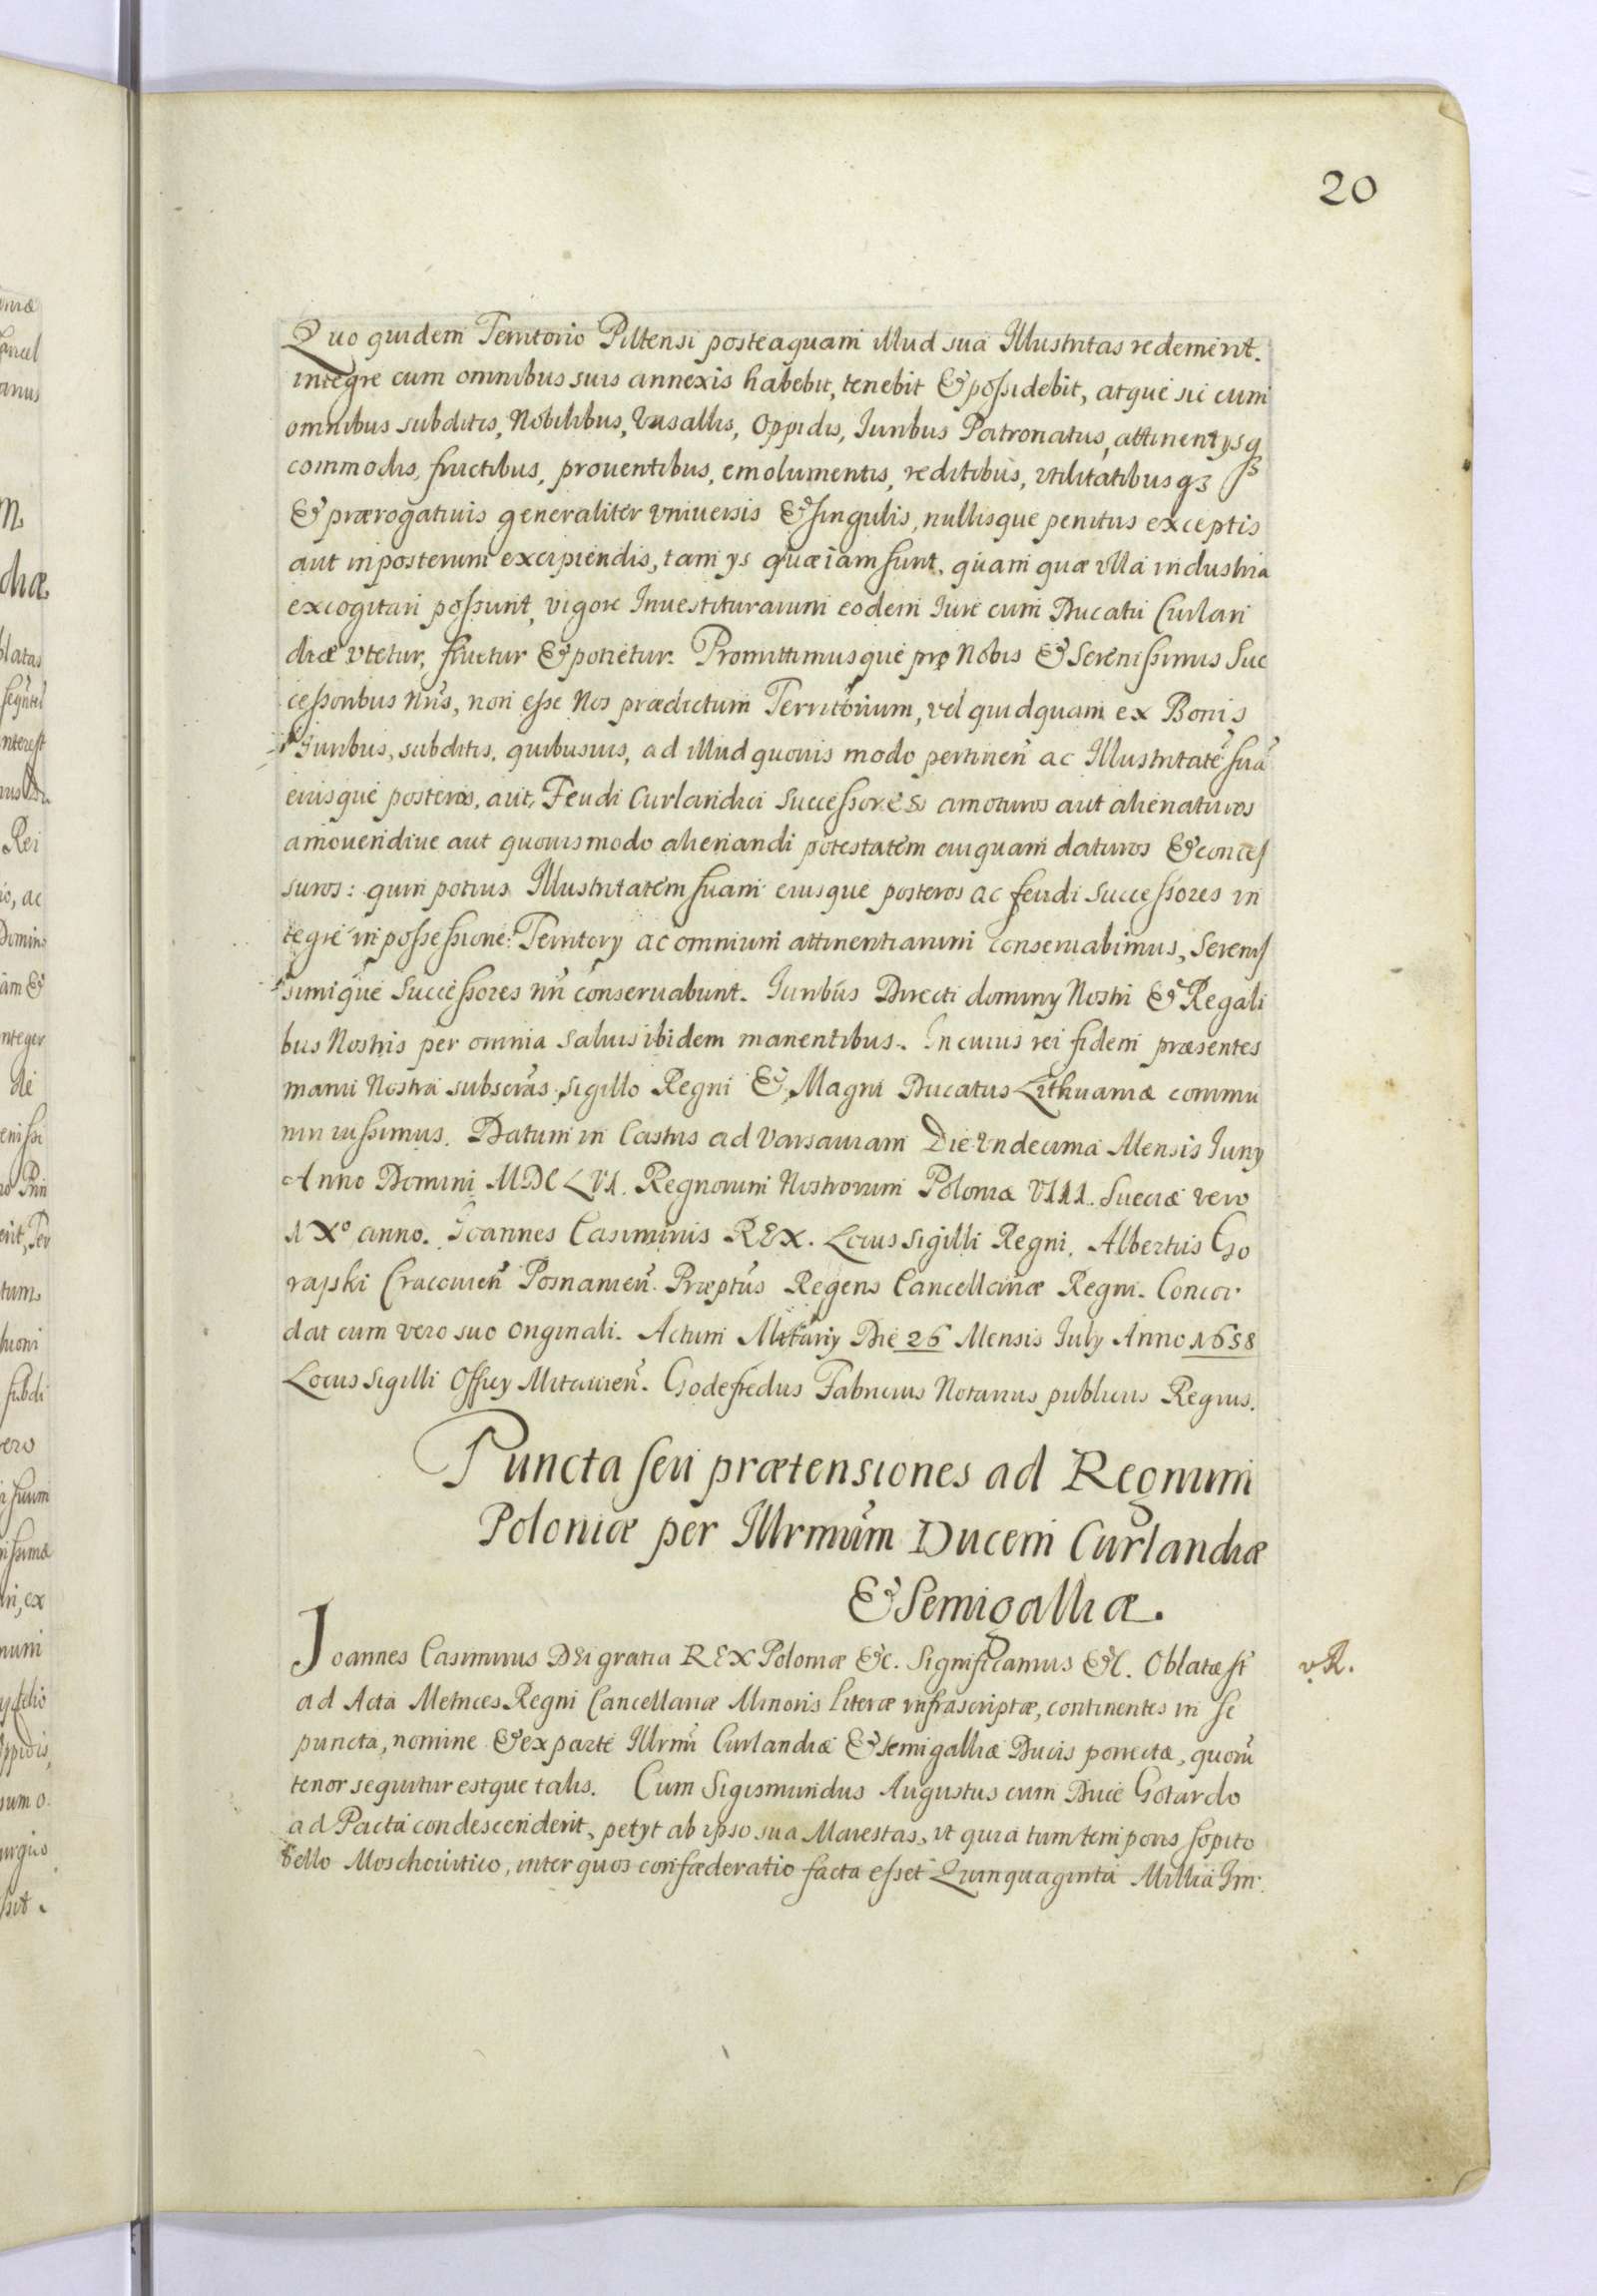 20
Quo quidem Territorio Piltensi posteaquam illud sua Illustritas redemerit.
integre cum omnibus suis annexis habebit, tenebit & possidebit, atque sic cum
omnibus subditis, Nobilibus, Vasallis, Oppidis, Iuribus Patronatus, attinentysq
commodis, fructibus, prouentibus, emolumentis, reditibus, vtilitatibusqз
& prærogatiuis generaliter vniuersis & singulis, nullisque penitus exceptis
aut inposterum excipiendis, tam ys quæ iam sunt, quam quæ vlla industria
excogitari possunt, vigore Inuestiturarum eodem Iure cum Ducatu Curlan
diæ vtetur, fruetur & potietur. Promittimusque pro Nobis & Serenissimis Suc
cessoribus Nrĩs, non esse Nos prædictum Territorium, vel quidquam ex Bonis
Iuribus, subditis, quibusuis, ad illud quouis modo pertineñ ac Illustritatẽ suã
eiusque posteros, aut Feudi Curlandici Successores amoturos aut alienaturos
amouendiue aut quouismodo alienandi potestatem cuiquam daturos & conces
suros: quin potius Illustritatem suam eiusque posteros ac feudi successores in
tegre in possessione Territory ac omnium attinentiarum conseruabimus, Serenis
simique Successores nrĩ conseruabunt. Iuribus Directi dominy Nostri & Regali
bus Nostris per omnia saluis ibidem manentibus. In cuius rei fidem præsentes
manu Nostra subscrãs sigillo Regni & Magni Ducatus Lithuaniæ commu
niri iussimus. Datum in Castris ad Varsauiam Die Vndecima Mensis Iuny
Anno Domini MDCLVI. Regnorum Nostrorum Poloniæ VIII. Sueciæ vero
IXº anno. Ioannes Casimirus REX. Locus Sigilli Regni. Albertus Go
rajski Cracouieñ Posnanieñ Præptũs Regens Cancellariæ Regni. Concor
dat cum vero suo originali. Actum Mitauiy Die 26 Mensis Iuly Anno 1658
Locus Sigilli Officy Mitauieñ. Godefredus Fabricius Notarius publicus Regius.
Puncta seu prætensiones ad Regnum
Poloniæ per Illrmũm Ducem Curlandiæ
& Semigalliæ.
Ioannes Casimirus DEi gratia REX Poloniæ &c. Significamus &c. Oblatæ st̃
ad Acta Metrices Regni Cancellariæ Minoris literæ infrascriptæ, continentes in se
puncta, nomine & ex parte Illrmĩ Curlandiæ & Semigalliæ Ducis porrectæ, quorũ
tenor sequitur estque talis. Cum Sigismundus Augustus cum Duce Gotardo
ad Pacta condescenderit, petyt ab ipso sua Maiestas, vt quia tum temporis sopito
bello Moschouitico, inter quos confœderatio facta esset Quinquaginta Millia Im